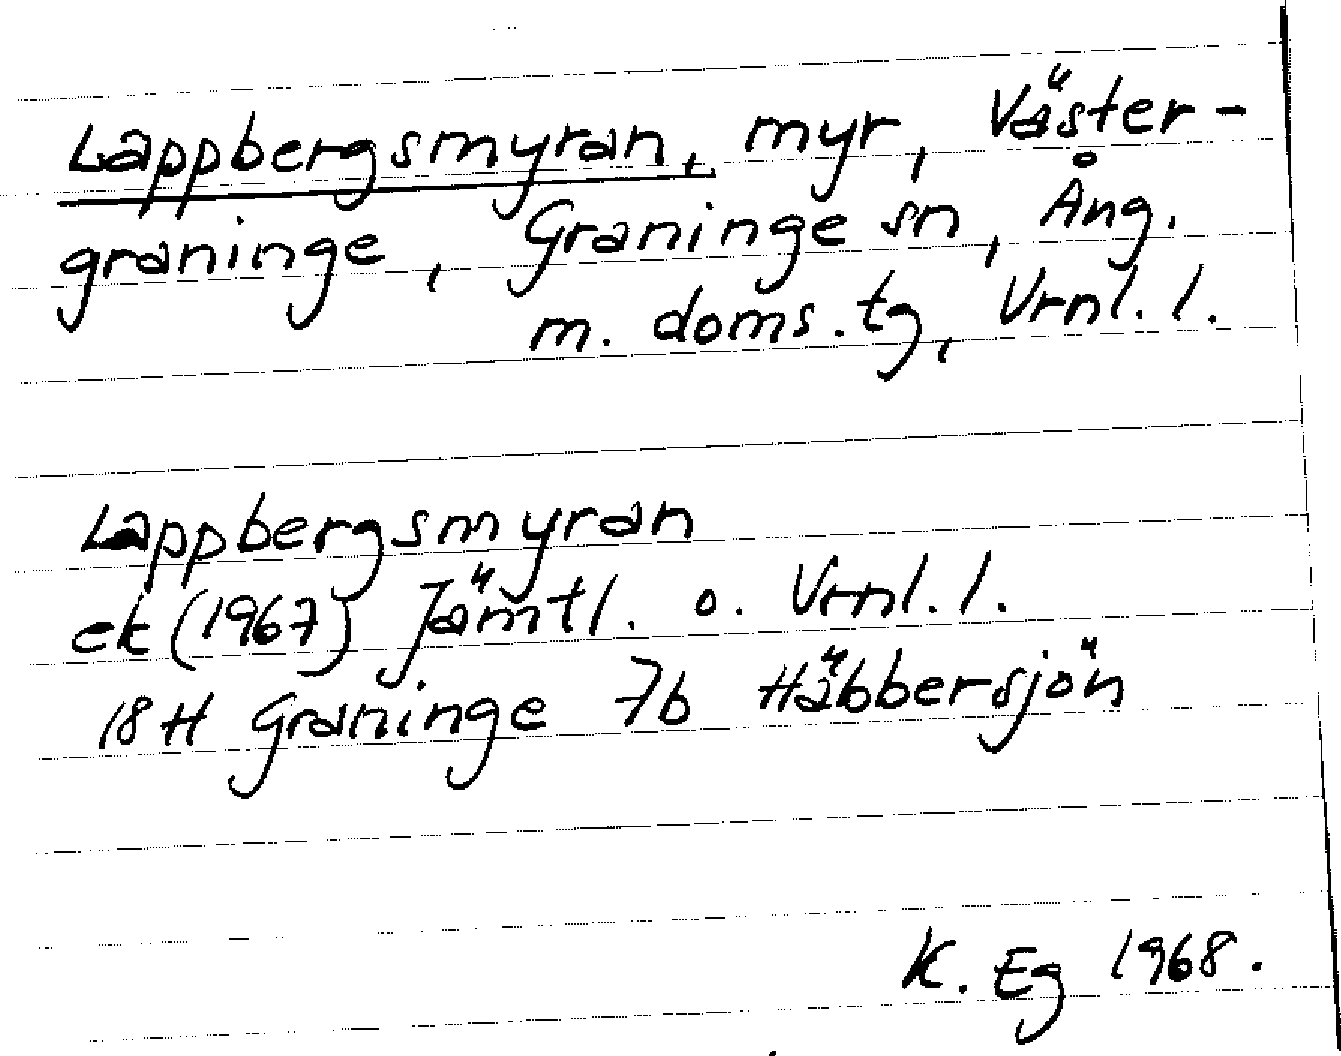 Lappbergsmyran, myr, Väster-
graninge, Graninge sn, Ång.
m. doms. tg, Vrnl. l.
Lappbergsmyran
ek (1967) Jämtl. o. Vrnl. l.
18H Graninge 7b Häbbersjön
K. Eg 1968.